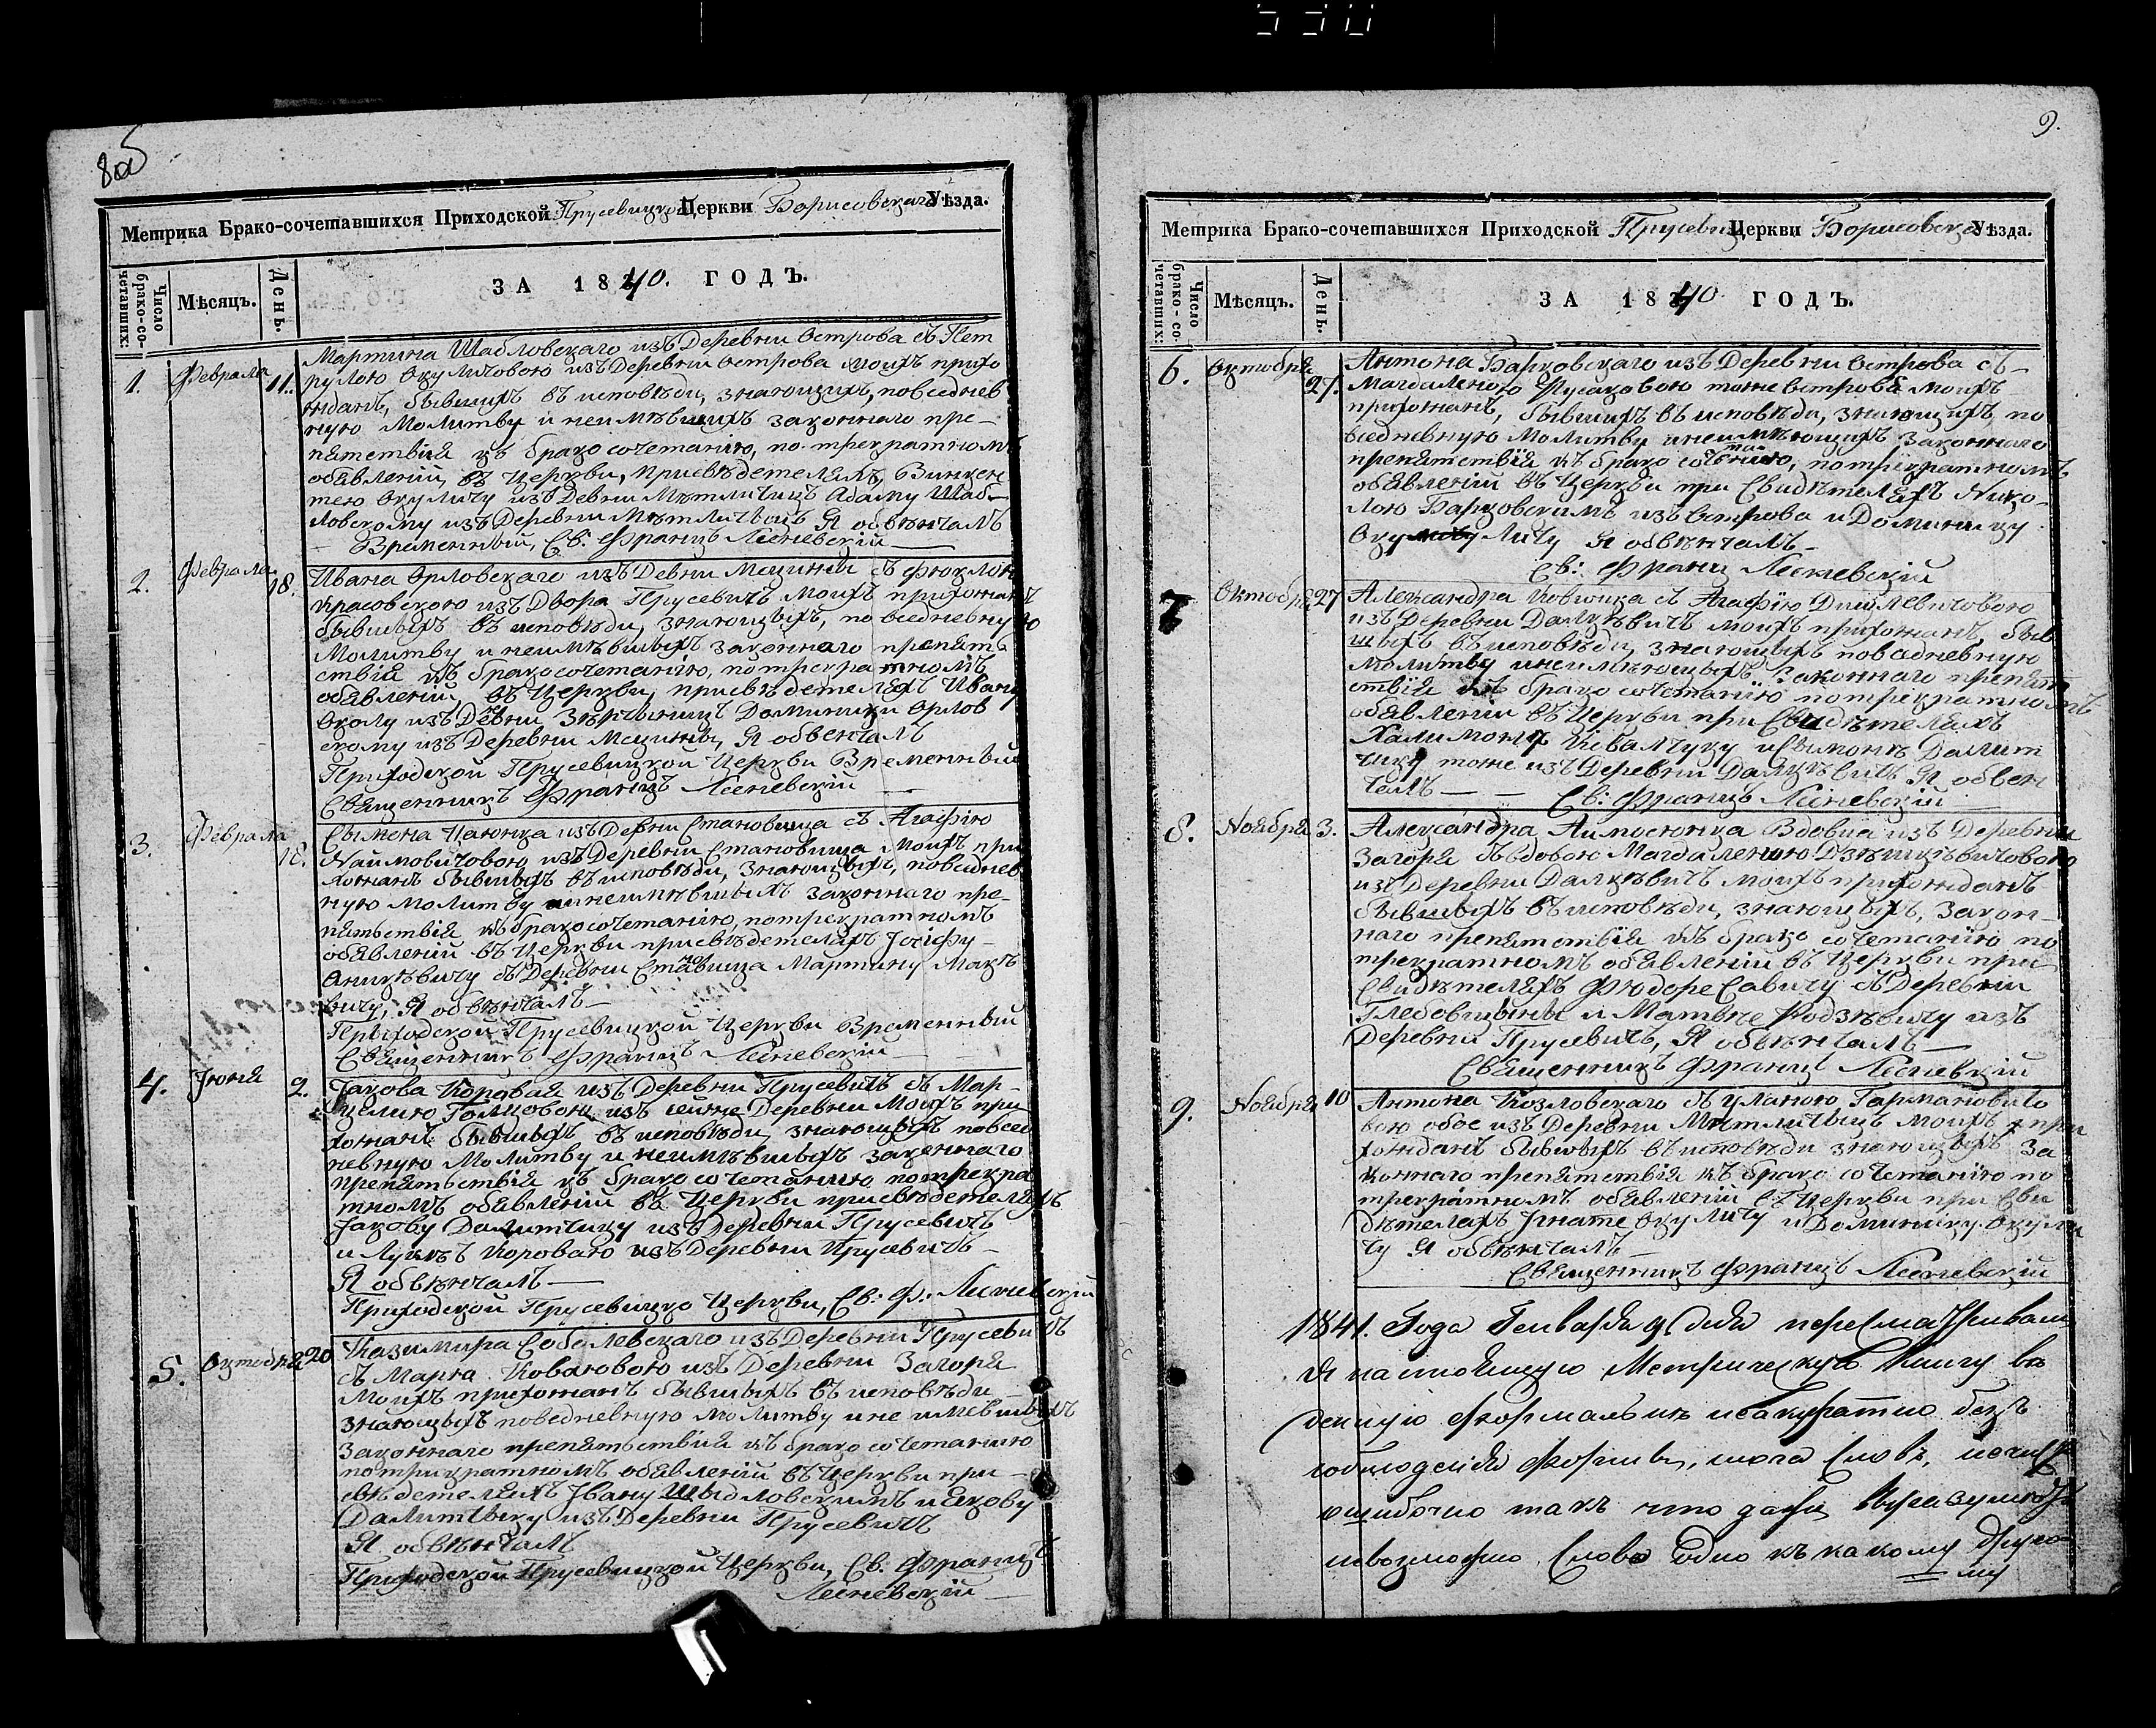 8 об
Метрика Брако-сочетавшихся Приходской Прусевицкой Церкви Борисовскаго Уѣзда.
Число брако-со-четавших:
Мѣсяцъ.
День.
ЗА 1840. ГОДЪ.
1. Февраля 11. Мартина Шабловскаго изъ Деревни Острова съ Пет
рулою Окуличовою изъ Деревни Острова моихъ прихо
жданъ, бывшихъ въ исповѣди, знающихъ, повседнев
ную Молитву и неимѣвшихъ законнаго пре-
пятствія къ бракосочетанію, по трекратномъ
обявленій въ Церкви, присвѣдетеляхъ, Винцен
тею Окуличу изъ Девни Мѣтличицъ Адаму Шаб-
ловскому изъ Деревни Мѣтличицъ Я обвѣнчалъ
Временный, Св: Францъ Лесневскій
2. Февраля 18. Ивана Орловскаго изъ Девни Мщины съ Феклою
Красовскою изъ Двора Прусевичъ моихъ прихожанъ
бывшыхъ въ исповѣди, знающыхъ, повседневную
Молитву и неимѣвшыхъ законнаго препят
ствія къ бракосочетанію, потрекратномъ
обявленій, въ Церкви, присвѣдетеляхъ Ивану
Околу изъ Девни Доминики Орлов
скому изъ Деревни Мщины, Я обвенчалъ
Приходской Прусевицкой Церкви Временный
Священникъ Францъ Лесневскій
3. Февраля 18. Сымона Цаюнка изъ Девни Становища съ Агафію
Наймовичовою изъ Деревни Становища Моихъ при
хожанъ бывшыхъ въ исповѣди, знающыхъ, повседнев
ную молитву и неимѣвшыхъ законнаго пре-
пятьствія къ бракосочетанію, потрекратномъ
обявленій въ Церкви присвѣдетеляхъ Іосіфу-
Аницкѣвичу съ Деревни Становища Мартину Мацкѣ
вичу, Я обвѣнчалъ
Приходской Прусевицкой Церкви Временный
Священникъ Францъ Лесневскій
4. Іюня 2. Јакова Коровая изъ Деревни Прусевичъ съ Мар-
целію Голцовою изъ сейже Деревни Моихъ при
хожанъ бывшыхъ въ исповѣди знающыхъ повсед
невную Молитву и неимѣвшыхъ законнаго
препятьствія къ брако сочетанію потрекра
тномъ обявленій въ Церкви присвѣдетеляхъ
Јакову Далитчику изъ Деревни Прусевичъ
и Лукѣ Короваю изъ Деревни Прусевичъ
Я обвѣнчалъ
Приходской Прусевицко Церкви, Св: Ф: Лесневскій
5. Октобря 20 Казимира Соболевскаго изъ Деревни Прусевичъ
съ Марта Коваловою изъ Деревни Загоря
Моихъ прихожанъ бывшыхъ въ исповѣди
знающыхъ поведневную молитву и не имѣвшыхъ
Законнаго препятьствія къ брако сочетанію
по трикратномъ обявленій въ Церкви при
свѣдетеляхъ Јвану Шыдловскимъ и Якову
Далитчику изъ Деревни Прусевичъ
Я обвѣнчалъ
Приходской Прусевицкой Церкви, Св: Францъ
Лесневскій
9.
Метрика Брако-сочетавшихся Приходской Прусевиц Церкви Борисовска Уѣзда.
Число брако-со-четавших:
Мѣсяцъ.
День.
ЗА 1840 ГОДЪ.
6. Октобря 27. Антона Барковскаго изъ Деревни Острова съ
Магдаленою Русаковою тоже Острова моихъ
прихожанъ, бывшихъ въ исповѣди, знающихъ по
вседневную Молитву и неимѣющихъ Законнаго
препятствія къ брако сочетанію, потрікратномъ
обявленіи въ Церкви при Свидѣтеляхъ Нико-
лою Барковскимъ изъ Острова и Доминику
Окуличу Я обвѣнчалъ
Св: Францъ Лесневскій
7 Октобря 27 Александра Ковшика съ Агафію Дашкевичовою
изъ Деревни Далькѣвичъ моихъ прихожанъ, быв
шыхъ въ исповѣди, знающыхъ повседневную
молитву и неимѣющыхъ Законнаго препят
ствія къ брако сочетанію потрекратномъ
обявленіи въ Церкви при Свидѣтеляхъ
Халимону Ковальчуку и Сымонъ Далит
чику тоже изъ Деревни Далькѣвичъ Я обвен
чалъ Св: Францъ Лесневскій
8. Ноября 3. Александра Аимосюнка Вдовца изъ Деревни
Загоря съ вдовою Магдаленою
изъ Деревни Далькѣвичъ моихъ прихожданъ
бывшыхъ въ исповѣди, знающыхъ, Закон-
наго препятствія къ брако сочетанію по
трекратномъ обявленій въ Церкви при
Свидѣтеляхъ Фюдоре Савичу съ Деревни
Глебовщыны и Матвѣе Родзѣвичу изъ
Деревни Прусевичъ, Я обвѣнчалъ
Священникъ Францъ Лесневскій
9. Ноября 10 Антона Козловскаго съ Уляною Гармановичо
вою обое изъ Деревни Мѣтличицъ моихъ при
хожданъ бывшыхъ въ исповѣди знающыхъ За
коннаго препятствія къ брако сочетанію по
трекратномъ обявленій въ Церкви при Сви
дѣтеляхъ Јгнате Окуличу и Доминику Окули
чу Я обвѣнчалъ
Священникъ Францъ Лесневскій
1841. Года Генваря 9 дня пересматривали
настоящую Метрическую Книгу ве
денную формально и неакуратно безъ
соблюденія формы, числа словъ, и
ошибочно такъ что даже вразумить
невозможно слово одно къ какому друго
му